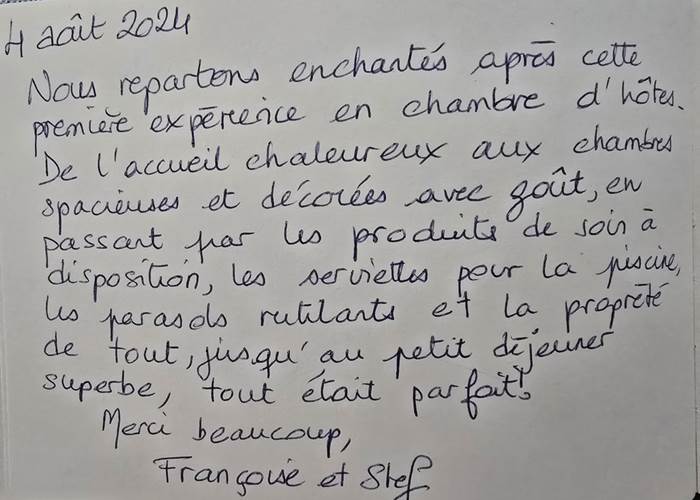 4 août 2024
Nous repartons enchantés après cette
première expérience en chambre d'hôtes.
De l'accueil chaleureux aux chambres
spacieuses et décorées avec goût, en
passant par les produits de soin à
disposition, les serviettes pour la piscine,
les parasols rutilants et la propreté
de tout, jusqu'au petit déjeuner
superbe, tout était parfait!
Merci beaucoup,
Françoise et Stef